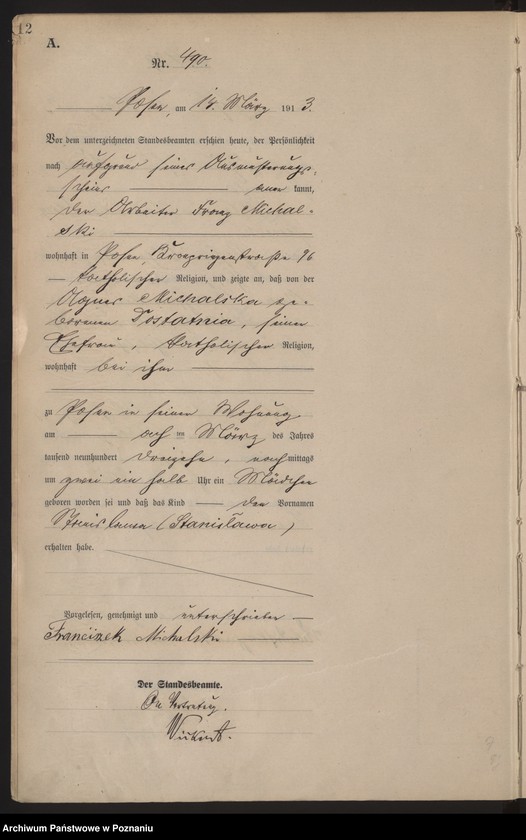 12
A.
Nr. 490.
Posen, am 18. März 1913.
Vor dem unterzeichneten Standesbeamten erschien heute, der Persönlichkeit
nach aufgrund seines Ausmusterungs-
scheins anerkannt,
der Arbeiter Franz Michal-
ski
wohnhaft in Posen, Kronprinzenstraße 96
katholischer Religion, und zeigte an, daß von der
Agnes Michalska ge-
borenen Dostatnia, seiner
Ehefrau, katholischer Religion,
wohnhaft bei ihm
zu Posen in seiner Wohnung
am acht ten März des Jahres
tausend neunhundert dreizehn, nachmittags
um zwei ein halb Uhr ein Mädchen
geboren worden sei und daß das Kind den Vornamen
Stanislawa (Stanisława)
erhalten habe.
Vorgelesen, genehmigt und unterschrieben
Franciszek Michalski
Der Standesbeamte.
In Vertretung.
Archiwum Państwowe w Poznaniu